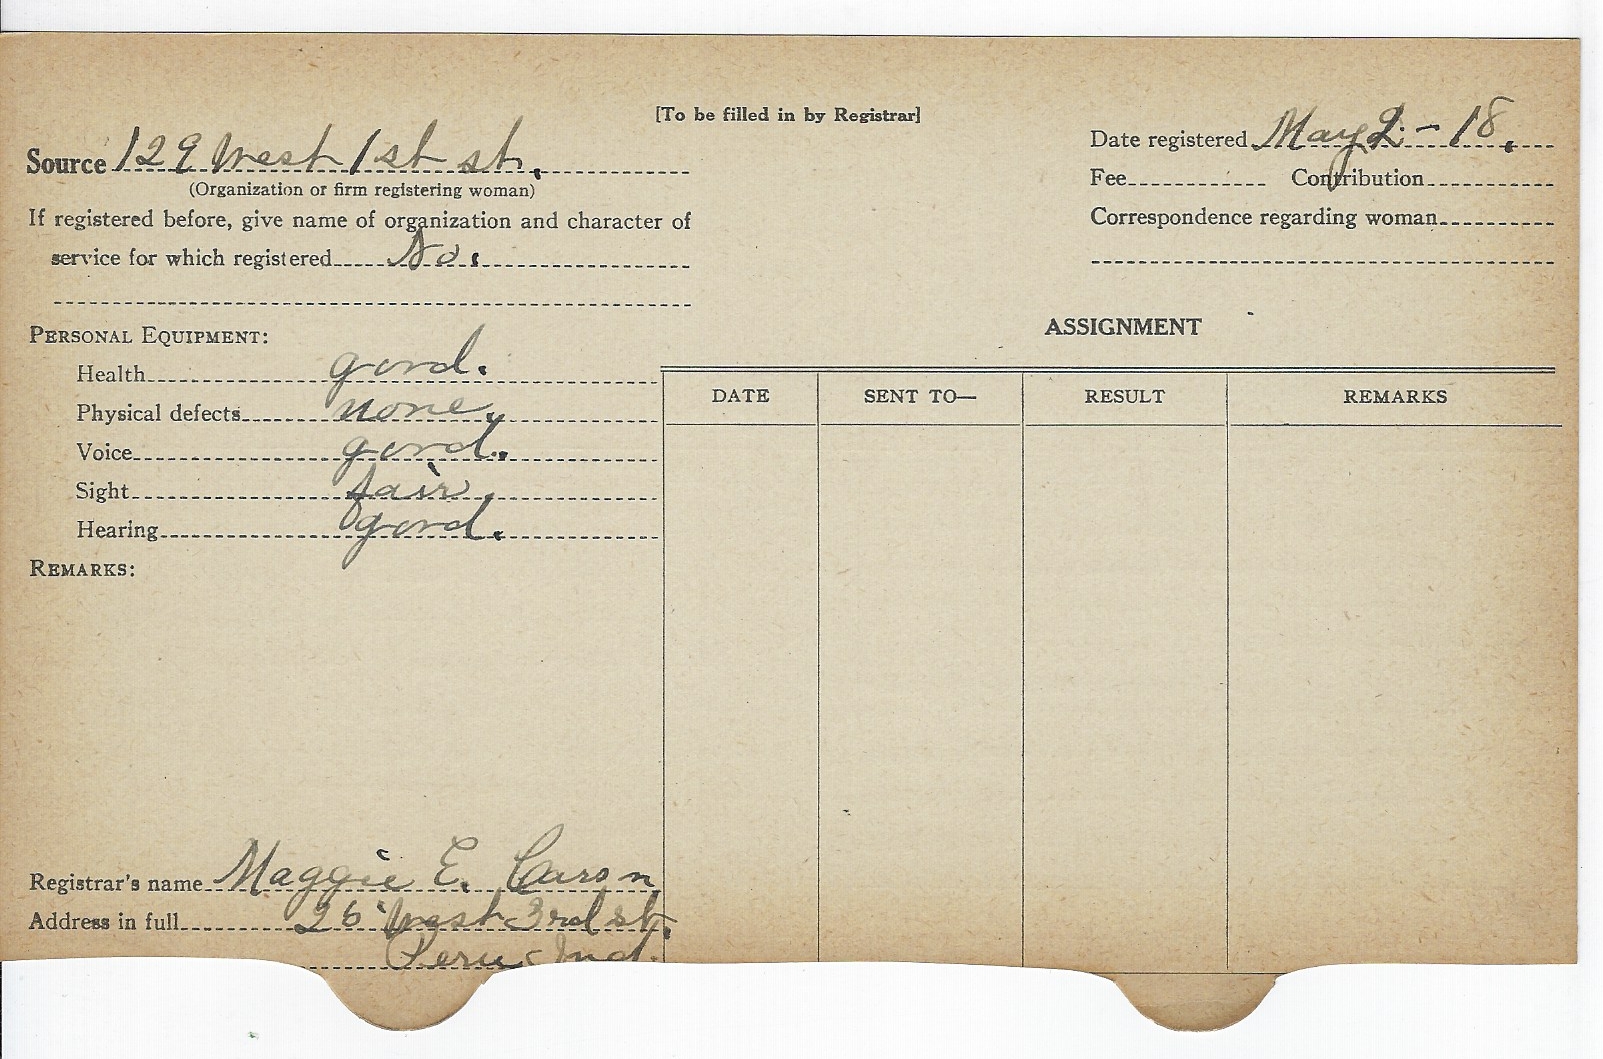 [To be filled in by Registrar]
Source 129 West 1st st.
(Organization or firm registering woman)
If registered before, give name of organization and character of
service for which registered No.
Date registered May 2 - 18.
Fee Contribution
Correspondence regarding woman
PERSONAL EQUIPMENT:
Health good.
Physical defects none.
Voice good.
Sight fair.
Hearing good.
REMARKS:
ASSIGNMENT
DATE SENT TO— RESULT REMARKS
Registrar's name Maggie E. Carson
Address in full 26 West 3rd st.
Peru Ind.